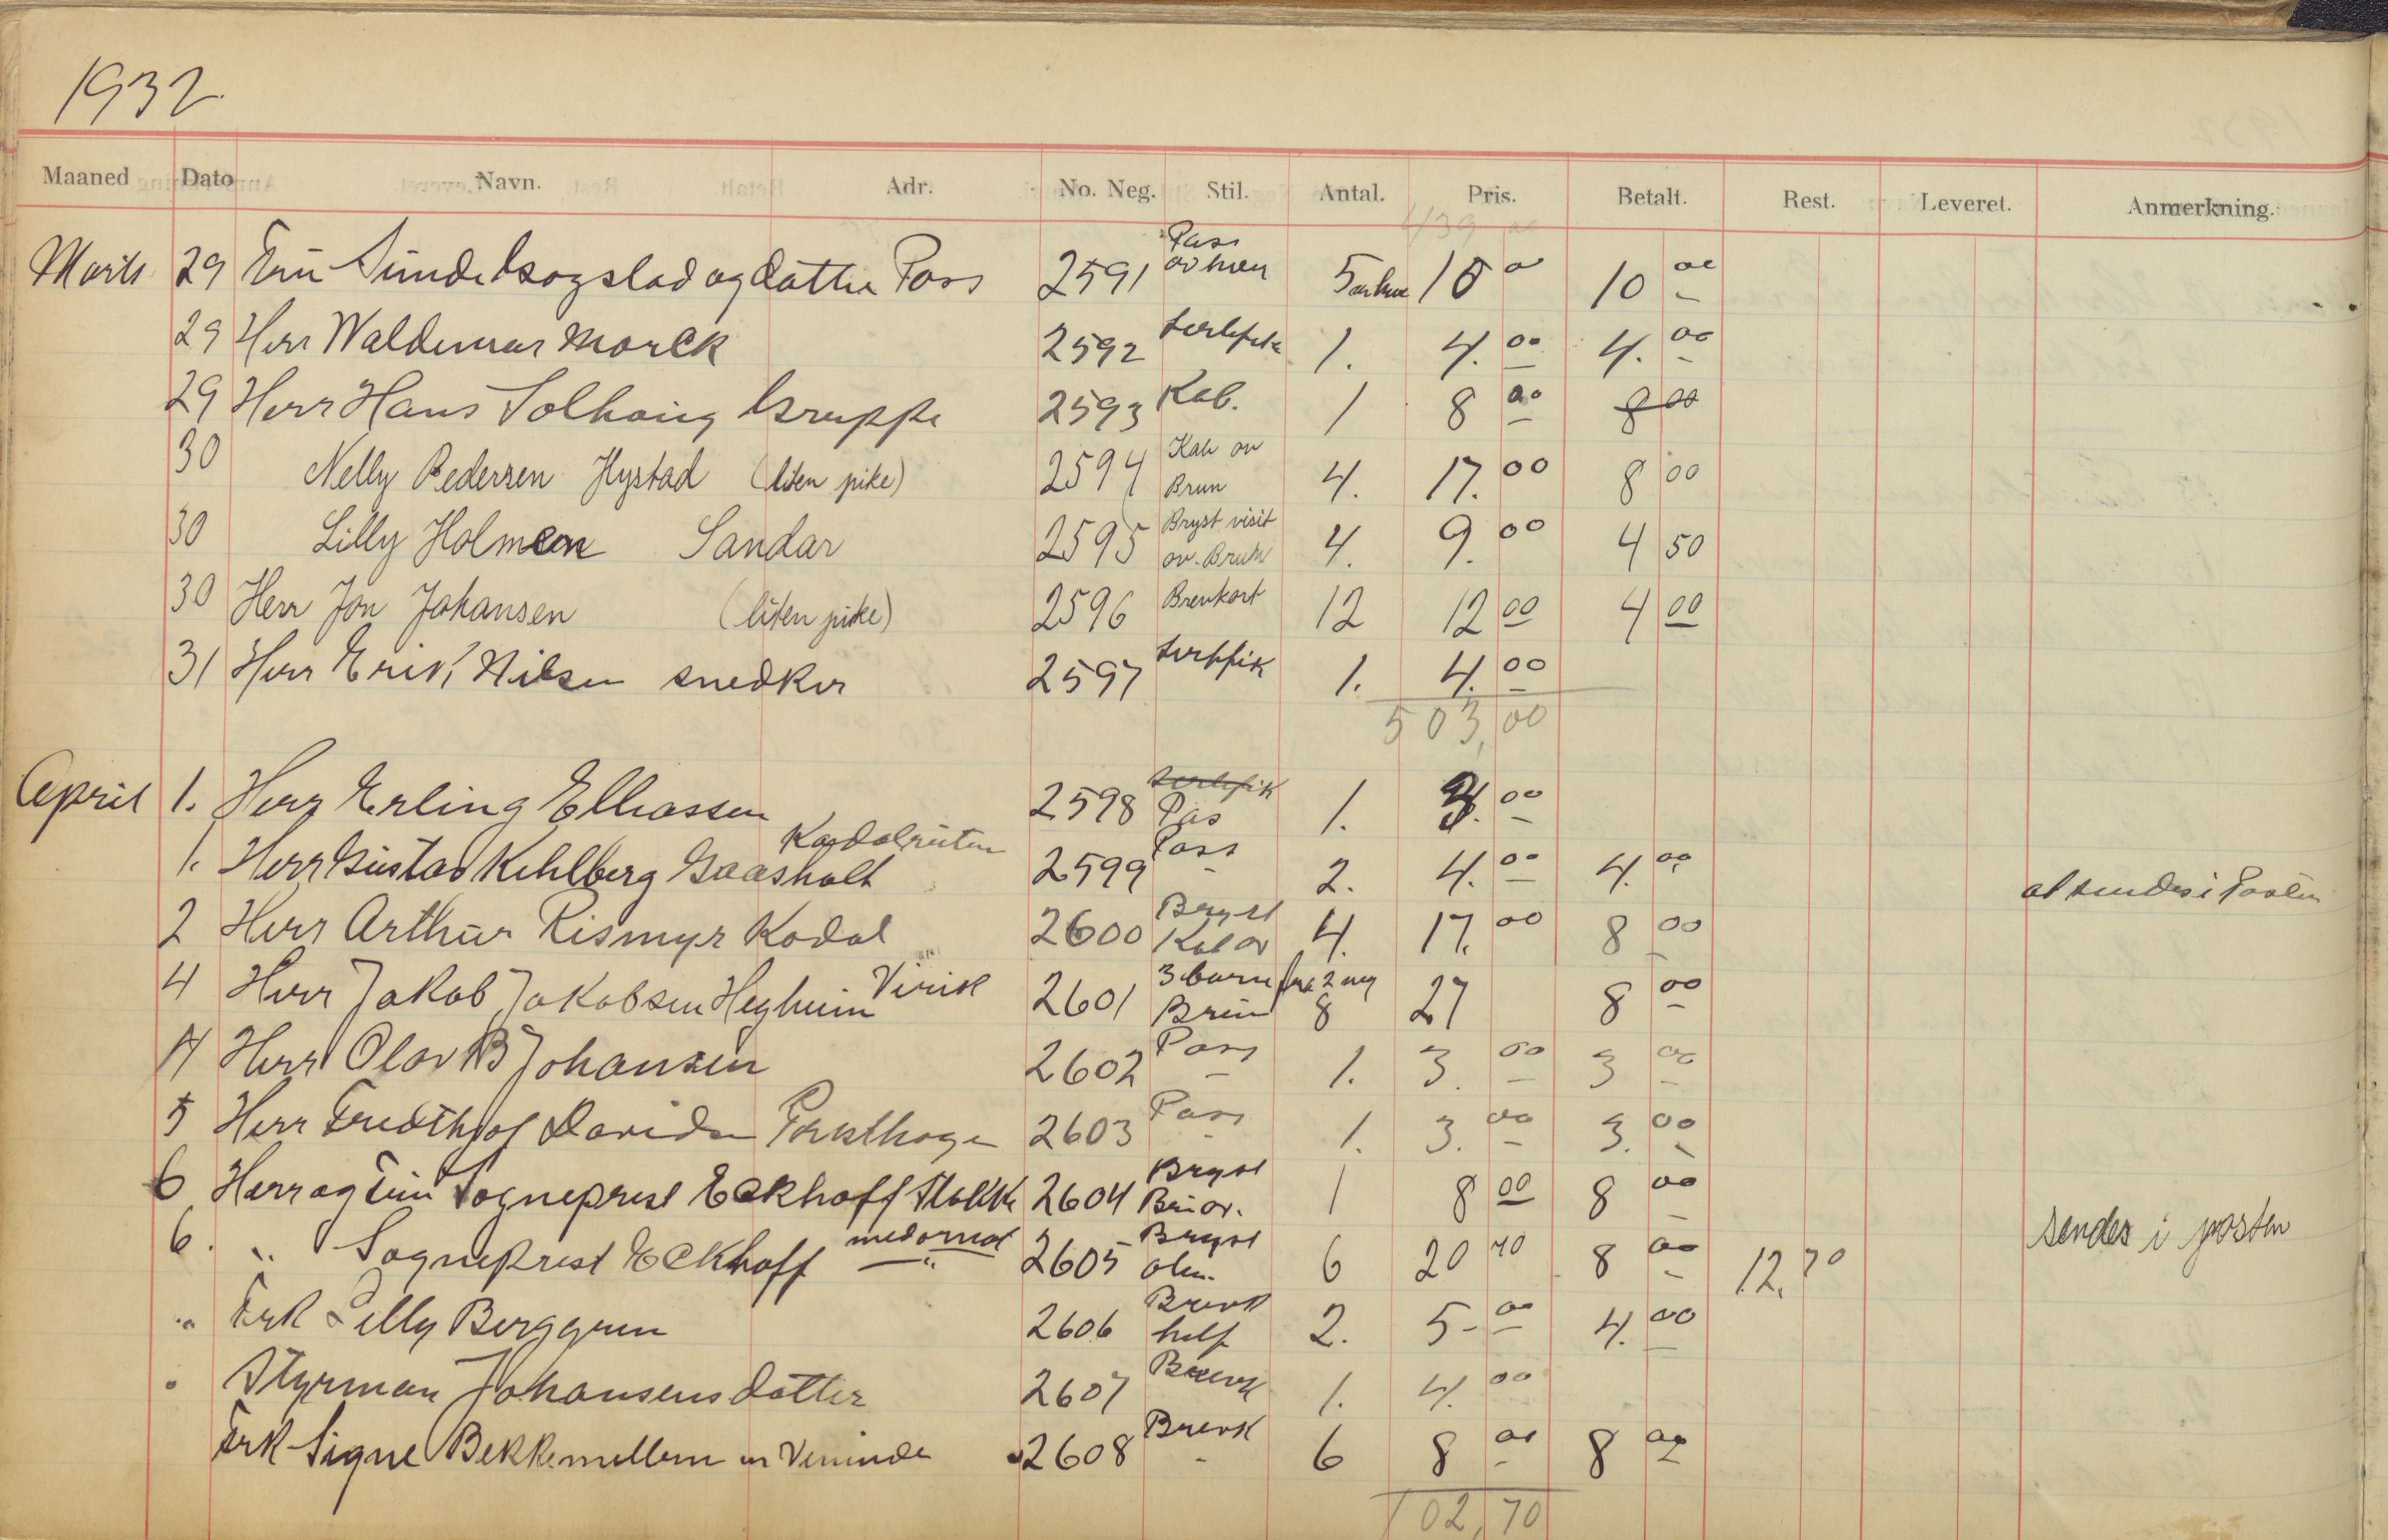 1932
Maaned Dato Navn. Adr. No. Neg. Stil. Antal. Pris. Betalt. Rest. Leveret. Anmerkning.
439
Pass
29 og datter Pass 2591 5 10 00 10 00
29 Herr Waldemar Morck 2592 1. 4. 00 4. 00
29 Herr Hans Solhaug Gruppe 2593 Kab. 1 8 00 8 00
30 Nelly Pedersen Hystad (liten pike) 2594 Kab ov Brun 4. 17. 00 8 00
30 Lilly Holmen Sandar 2595 Bryst visit ov. Brun 4. 9. 00 4 50
30 Herr Jon Johansen (liten pike) 2596 Brevkort 12 12 00 4 00
31 Herr Erik Nilsen snedker 2597 1. 4. 00
503,00
April 1. Herr Erling Elliassen 2598 Pas 1. 00
Kodalruten
1. Herr Gustav Kihlberg Gaasholt 2599 Pass 2. 4. 00 4. 00 at sendes i Posten
2 Herr Arthur Rismyr Kodal 2600 Bryst Kab ov 4. 17. 00 8 00
4 Herr Jakob Jakobsen Virik 2601 3 barn fra 2 neg Brun 8 27 8 00
4 Herr Olav B Johansen 2602 Pass 1. 3. 00 3 00
5 Herr Fredthjof 2603 Pass 1. 3. 00 3. 00
6 Herr og Fru Sogneprest Eckhoff Stokke 2604 Bryst 1 8 00 8 00
6. " Sogneprest Eckhoff med ornat 2605 Bryst 6 20 70 8 00 12,70 sendes i posten
" Frk Lilly Berggren 2606 Brevk helf 2. 5- 00 4. 00
" Styrman Johansens datter 2607 Brevk 1. 4. 00
Frk Signe Bekkemellem 2608 Brevk 6 8 00 8 00
102,70